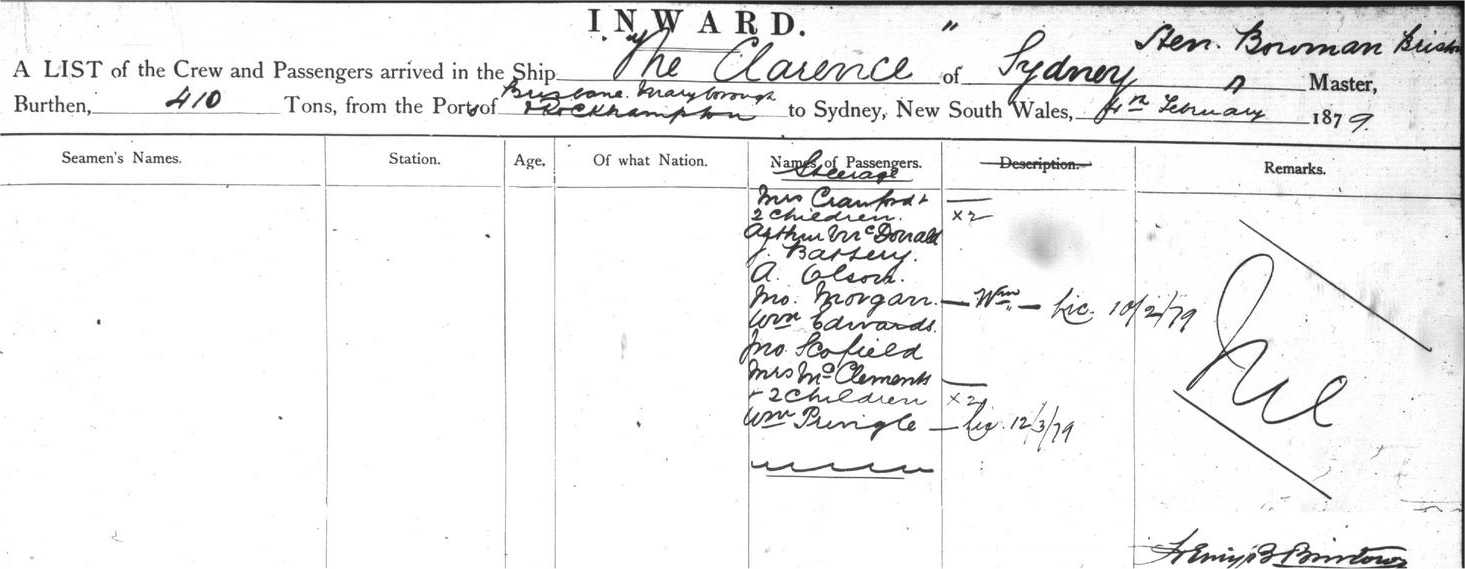 INWARD.
A LIST of the Crew and Passengers arrived in the Ship "The Clarence" of Sydney Hen. Bowman Master,
Burthen, 410 Tons, from the Port of Brisbane. Maryborough & Rockhampton to Sydney, New South Wales, 4th February 1879.
Seamen's Names. Station. Age, Of what Nation. Names of Passengers. Description. Remarks.
Steerage
Mrs Cranford &
2 Children. x2
Arthur McDonald
J. Battery.
A. Olson.
Jno. Morgan. — Wm — Lic. 10/2/79
Wm Edwards.
Jno. Scofield
Mrs McClements
& 2 Children x2
Wm Pringle — Lic. 12/3/79
Henry B